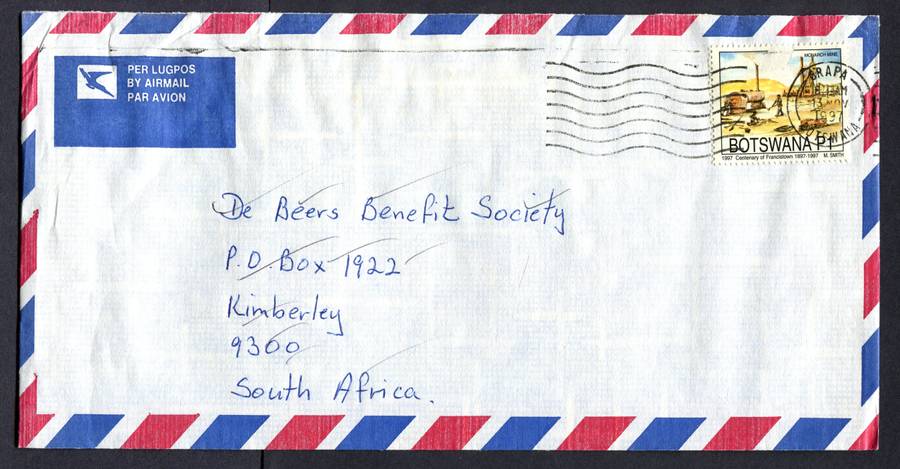 PER LUGPOS
BY AIRMAIL
PAR AVION
MONARCH MINE
BOTSWANA P1
1997 Centenary of Francistown 1897-1997 M. SMITH
1997
De Beers Benefit Society
P.O. Box 1922
Kimberley
9300
South Africa.